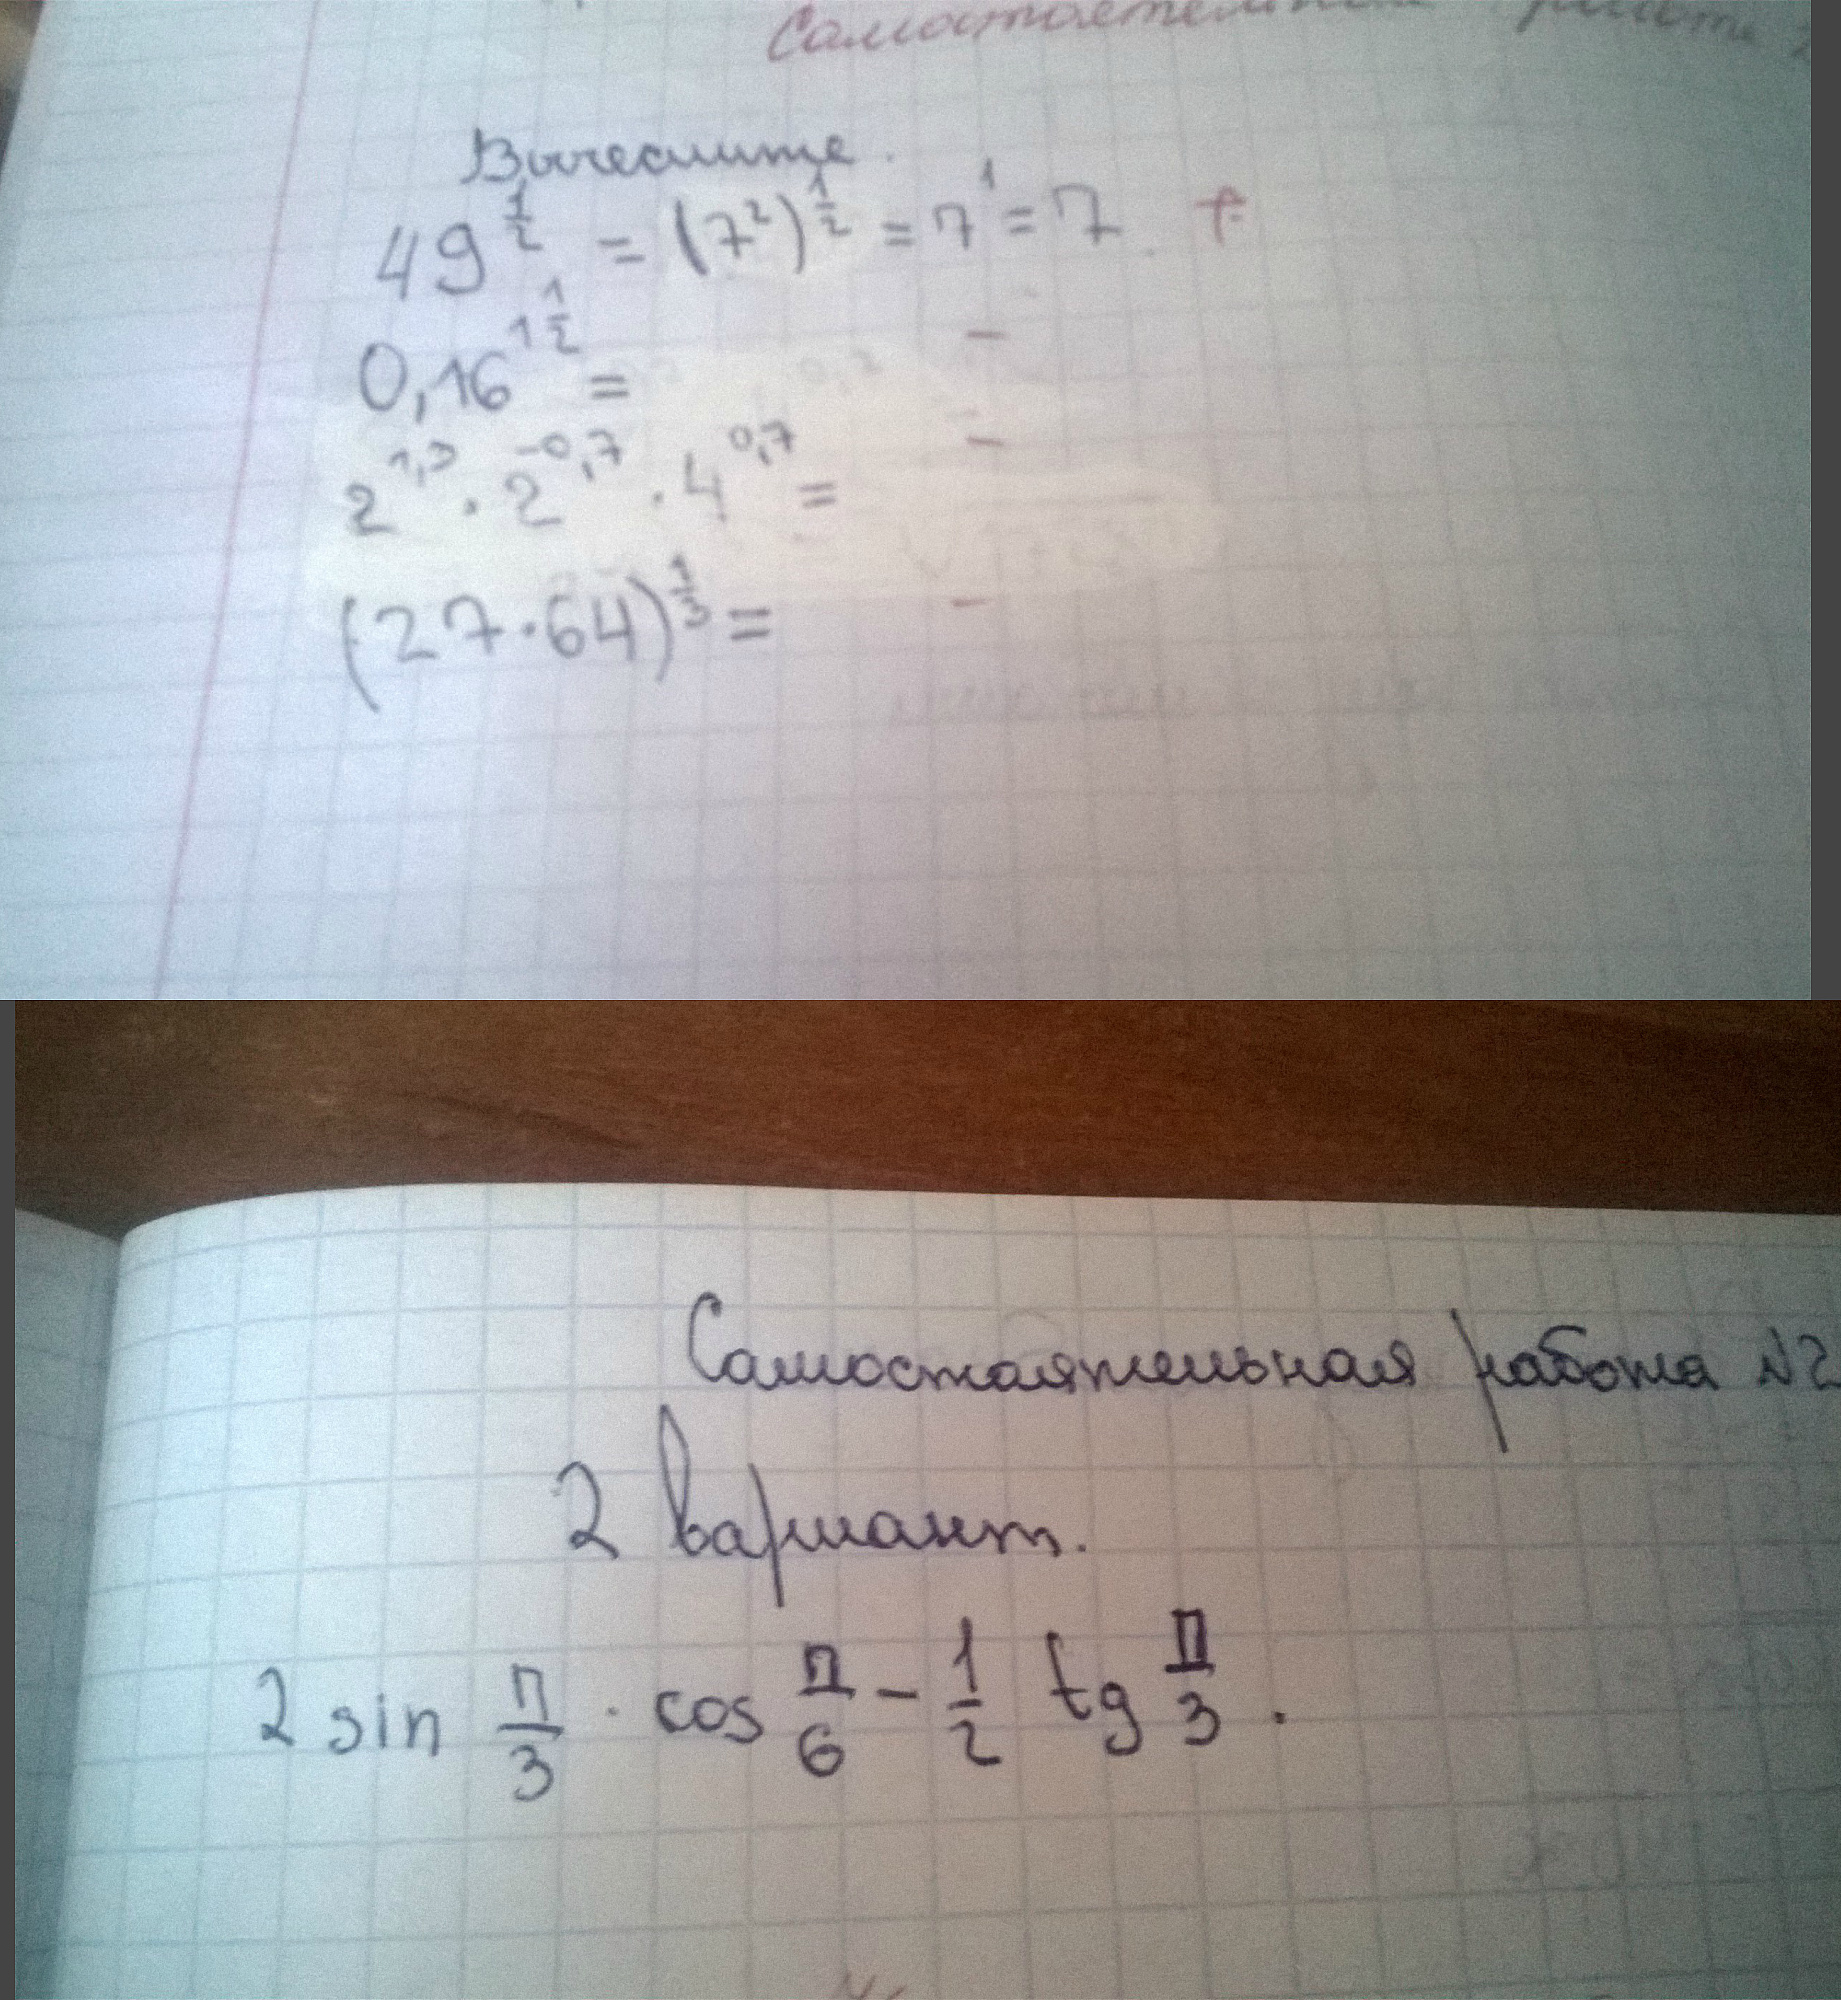 Самостоятельная работа
Вычеслите.
49^{\frac{1}{2}} = (7^2)^{\frac{1}{2}} = 7^1 = 7 +
0,16^{1\frac{1}{2}} = −
2^{1,3} · 2^{-0,7} · 4^{0,7} = −
(27·64)^{\frac{1}{3}} = −
Самостаятельная работа №2
2 вариант.
2 sin \frac{π}{3} · cos \frac{π}{6} − \frac{1}{2} tg \frac{π}{3}.